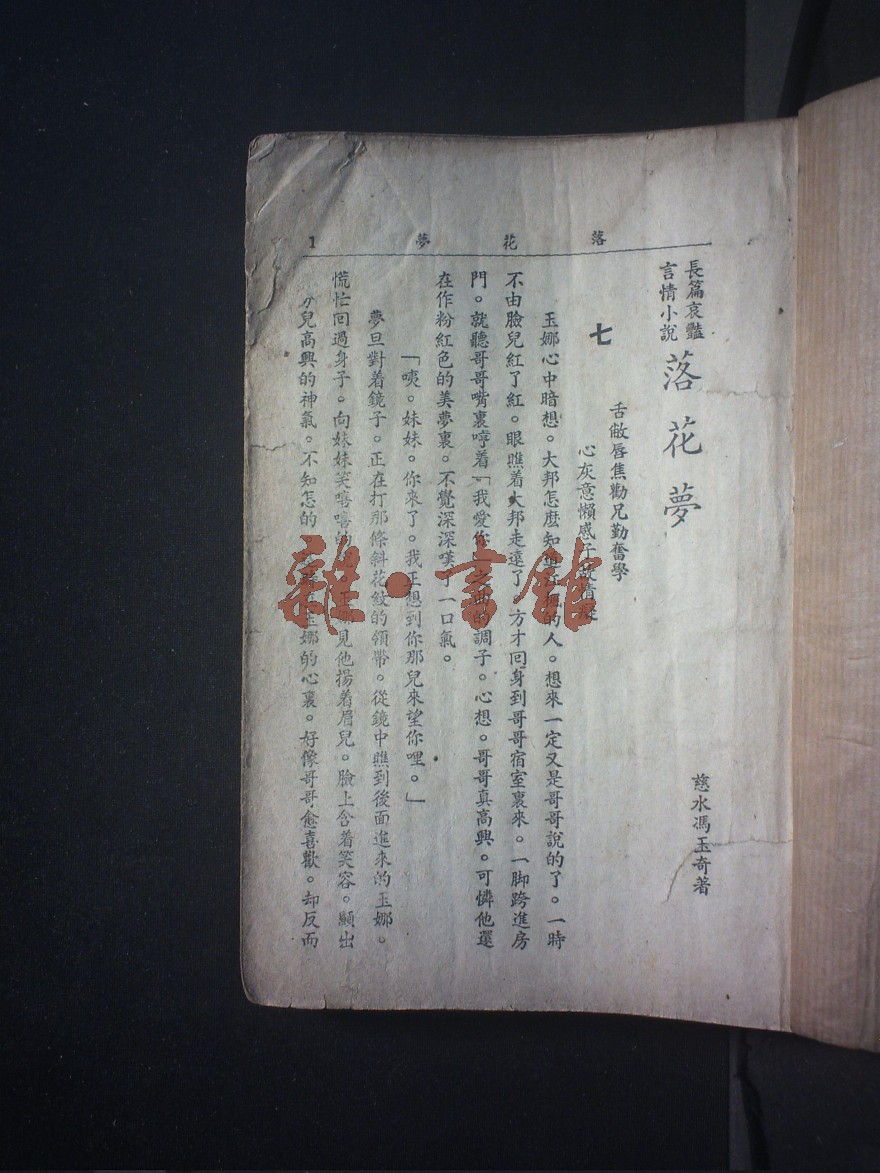 落花夢 1
長篇哀豔
言情小說
落花夢
慈水馮玉奇著
七
舌敝唇焦勸兄勤奮學
心灰意懶感子
玉娜心中暗想。大邦怎麼知的人。想來一定又是哥哥說的了。一時
不由臉兒紅了紅。眼瞧着大邦走遠了。方才回身到哥哥宿室裏來。一脚跨進房
門。就聽哥哥嘴裏哼着「我愛你」之曲的調子。心想。哥哥真高興。可憐他還
在作粉紅色的美夢裏。不覺深深嘆了一口氣。
「咦。妹妹。你來了。我正想到你那兒來望你哩。」
夢旦對着鏡子。正在打那條斜花紋的領帶。從鏡中瞧到後面進來的玉娜。
慌忙回過身子。向妹妹笑嘻嘻的娜見他揚着眉兒。臉上含着笑容。顯出
兒高興的神氣。不知怎的玉娜的心裏。好像哥哥愈喜歡。却反而
雜·書館